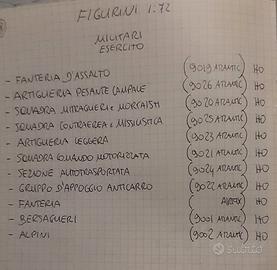 FIGURINI 1:72
MILITARI
ESERCITO
- FANTERIA D'ASSALTO (9019 ATLANTIC) HO
- ARTIGLIERIA PESANTE CAMPALE (9026 ATLANTIC) HO
- SQUADRA MITRAGLIERI E MORTAISTI (9020 ATLANTIC) HO
- SQUADRA CONTRAEREA E MISSILISTICA (9025 ATLANTIC) HO
- ARTIGLIERIA LEGGERA (9023 ATLANTIC) HO
- SQUADRA COMANDO MOTORIZZATA (9021 ATLANTIC) HO
- SEZIONE AUTOTRASPORTATA (9024 ATLANTIC) HO
- GRUPPO D'APPOGGIO ANTICARRO (9022 ATLANTIC) HO
- FANTERIA ( AIRFIX ) HO
- BERSAGLIERI (9001 ATLANTIC) HO
- ALPINI (9002 ATLANTIC) HO
Subito